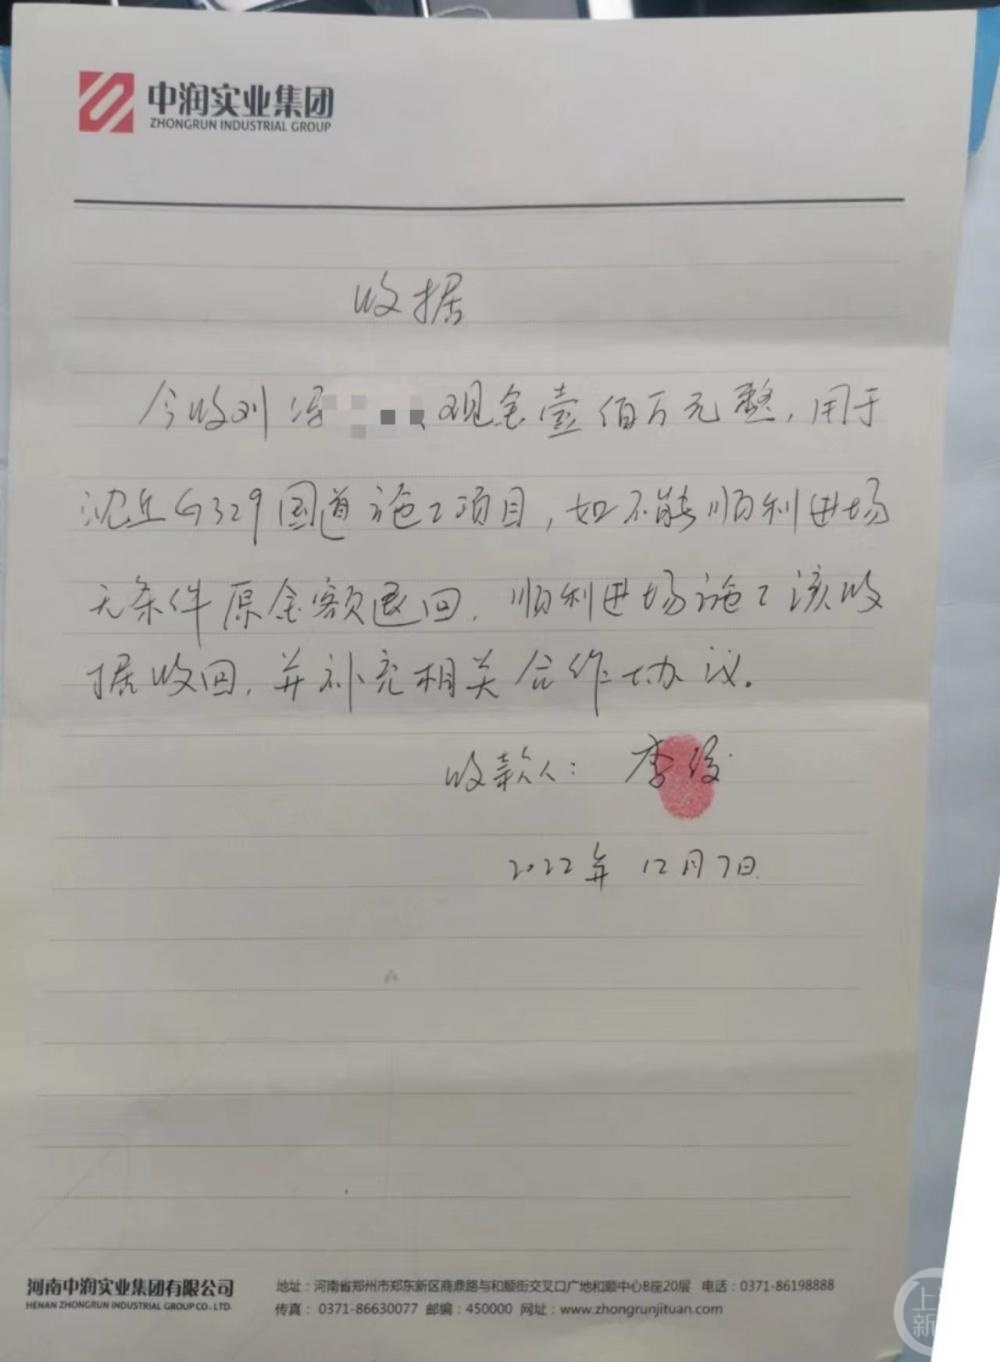 中润实业集团
ZHONGRUN INDUSTRIAL GROUP
收据
今收到冯 现金壹佰万元整，用于
沈丘G329国道施工项目，如不能顺利进场
无条件原金额退回，顺利进场施工该收
据收回，并补充相关合作协议。
收款人：李俊
2022年12月7日
河南中润实业集团有限公司
HENAN ZHONGRUN INDUSTRIAL GROUP CO., LTD.
地址：河南省郑州市郑东新区商鼎路与和顺街交叉口广地和顺中心B座20层 电话：0371-86198888
传真：0371-86630077 邮编：450000 网址：www.zhongrunjituan.com
上
新